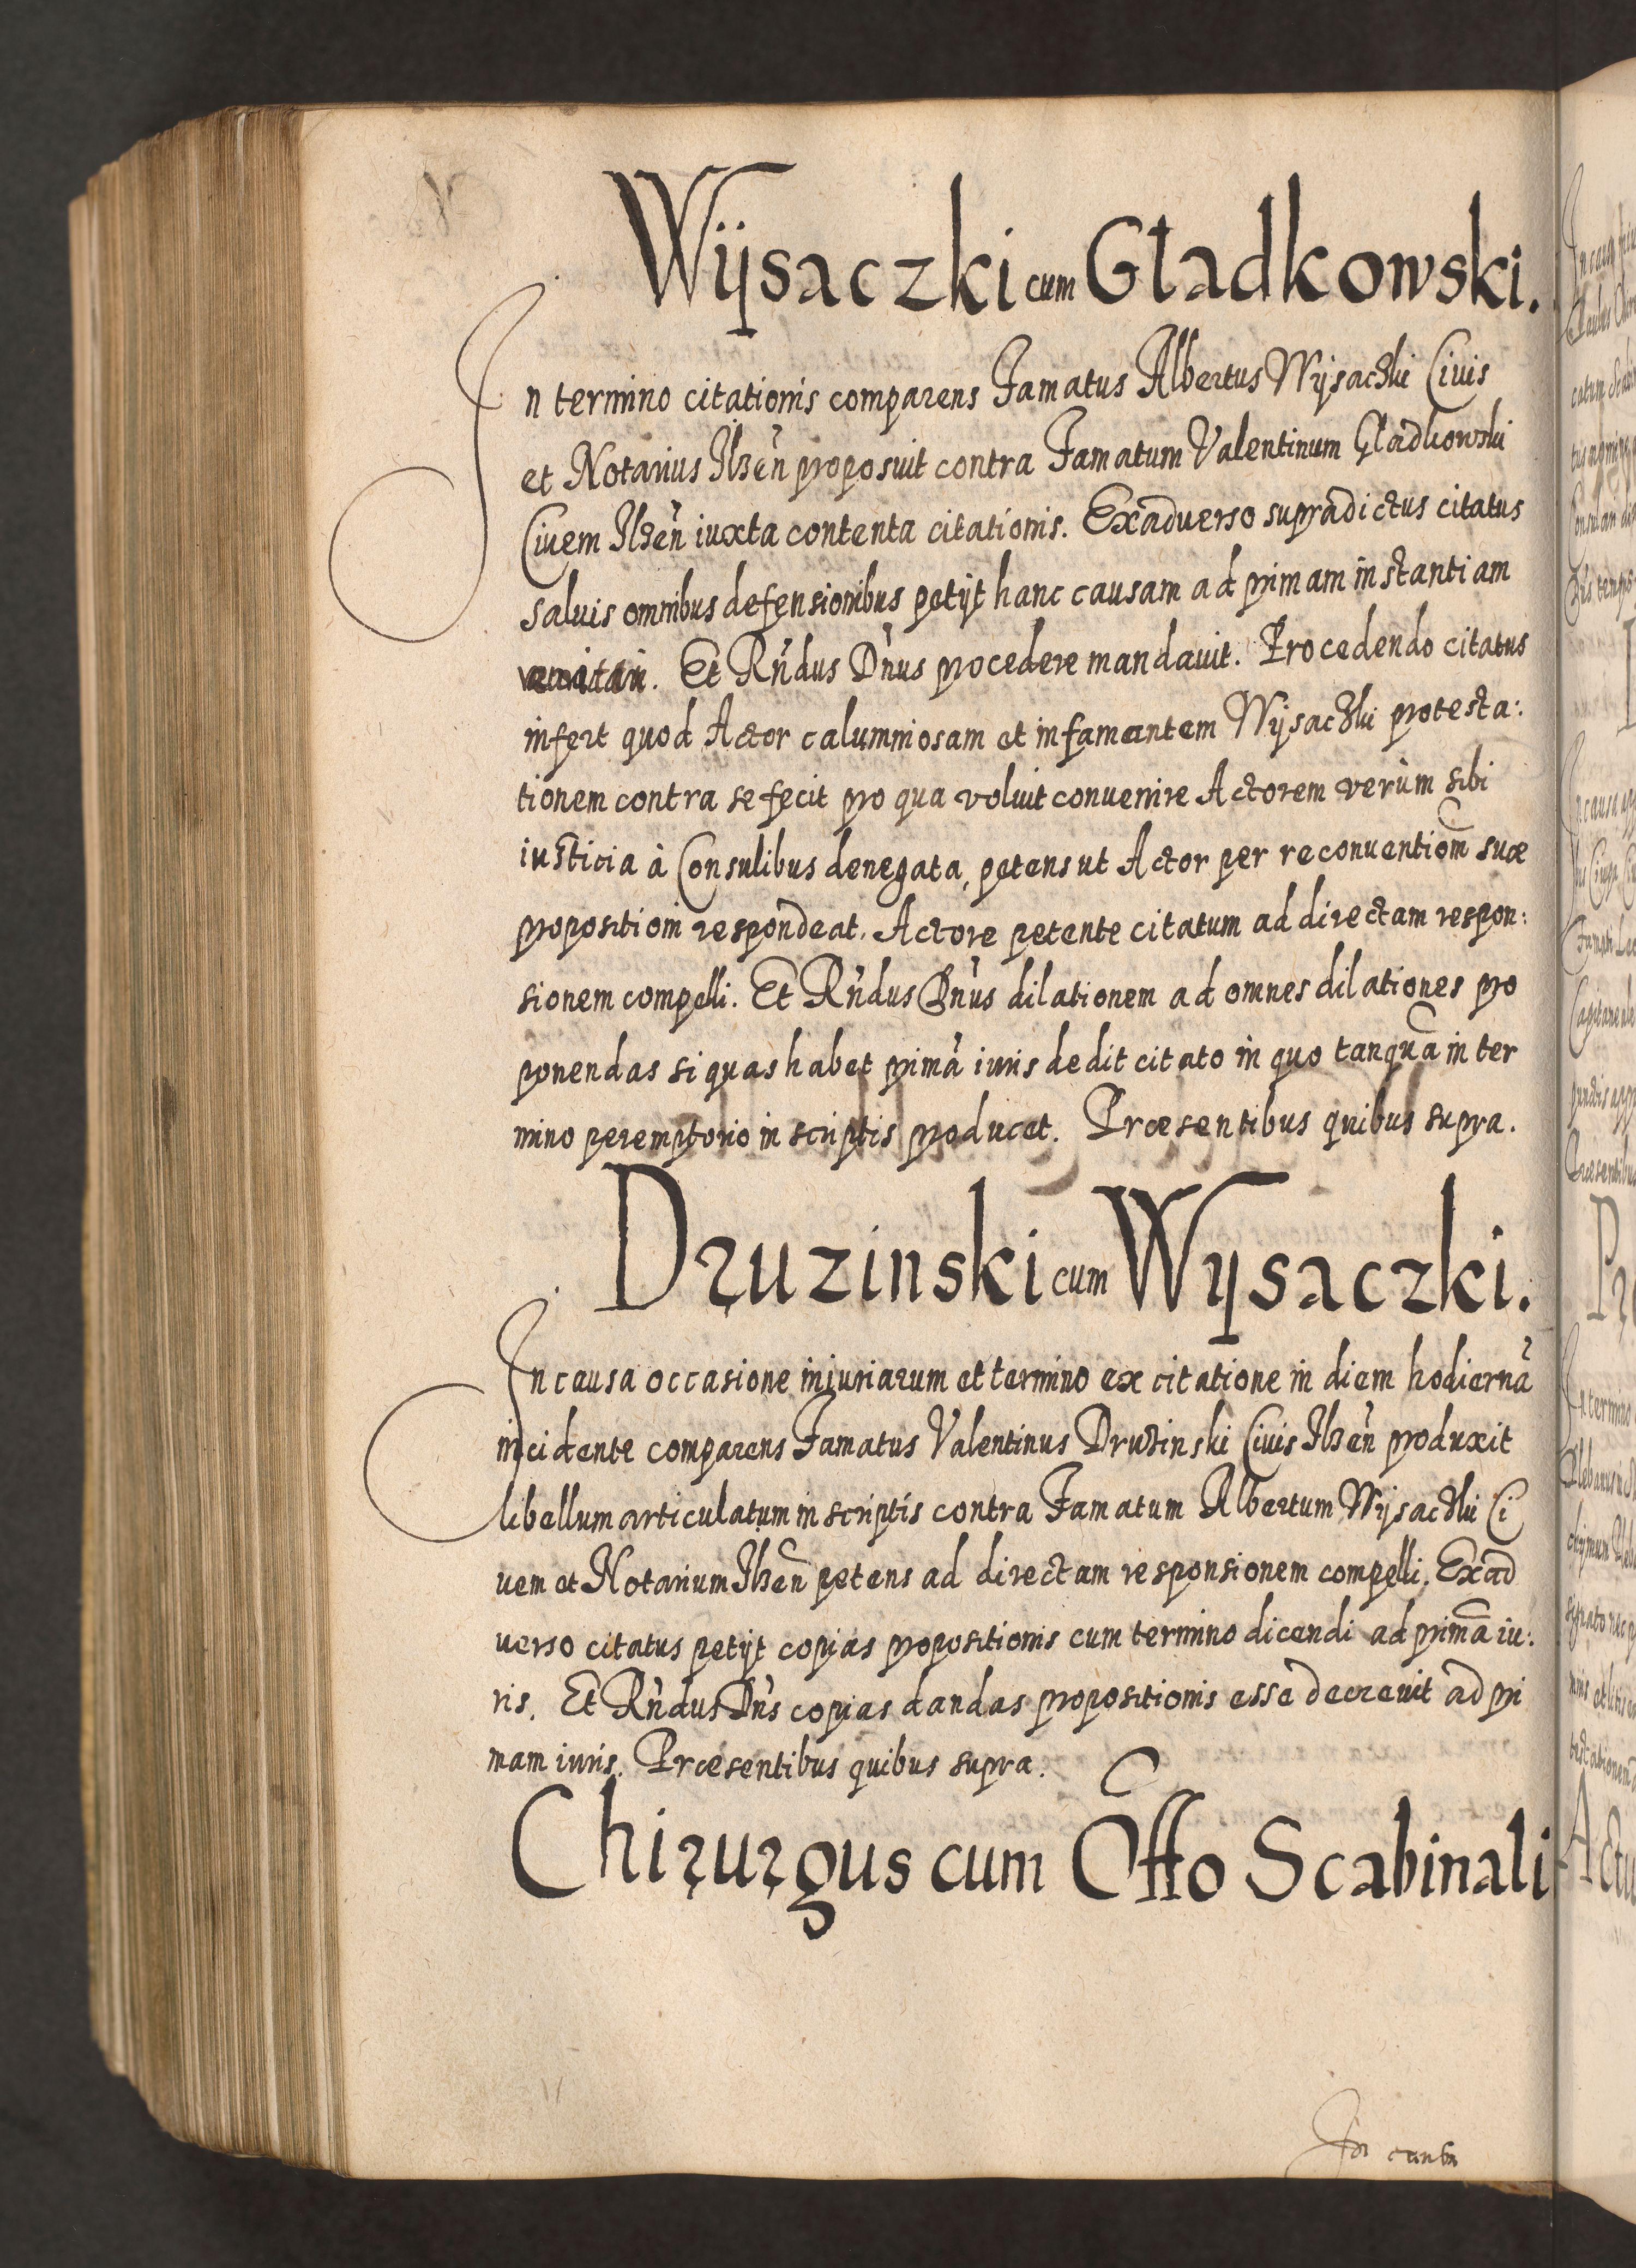 Wÿsaczki cum Gładkowski.
In termino citationis comparens Famatus Albertus Wÿsaczki Ciuis
et Notarius Ilzen̄ proposuit contra Famatum Valentinum Gładkowski
Ciuem Ilzen̄ iuxta contenta citationis. Exaduerso supradictus citatus
saluis omnibus defensionibus petÿt hanc causam ad primam instantiam
remitti. Et Rn̄dus Dn̄us procedere mandauit. Procedendo citatus
infert quod Actor calumniosam et infamantem Wÿsaczki protesta:
tionem contra se fecit pro qua voluit conuenire Actorem verùm sibi
iusticia à Consulibus denegata, petens ut Actor per reconuentiom̄ suæ
propositioni respondeat. Actore petente citatum ad directam respon:
sionem compelli. Et Rn̄dus Dn̄us dilationem ad omnes dilationes pro
ponendas si quas habet primā iuris dedit citato in quo tanquā in ter
mino peremptorio in scriptis producet. Præsentibus quibus supra.
Druzinski cum Wÿsaczki.
In causa occasione iniuriarum et termino ex citatione in diem hodiernā
incidente comparens Famatus Valentinus Druzinski Ciuis Ilzen̄ produxit
libellum articulatum in scriptis contra Famatum Albertum Wÿsaczki Ci
uem et Notarium Ilzen̄ petens ad directam responsionem compelli. Exad
uerso citatus petÿt copias propositionis cum termino dicendi ad primā iu:
ris. Et Rn̄dus Dn̄s copias dandas propositionis esse decreuit ad pri
mam iuris. Præsentibus quibus supra.
Chirurgus cum Offo Scabinali
In causa